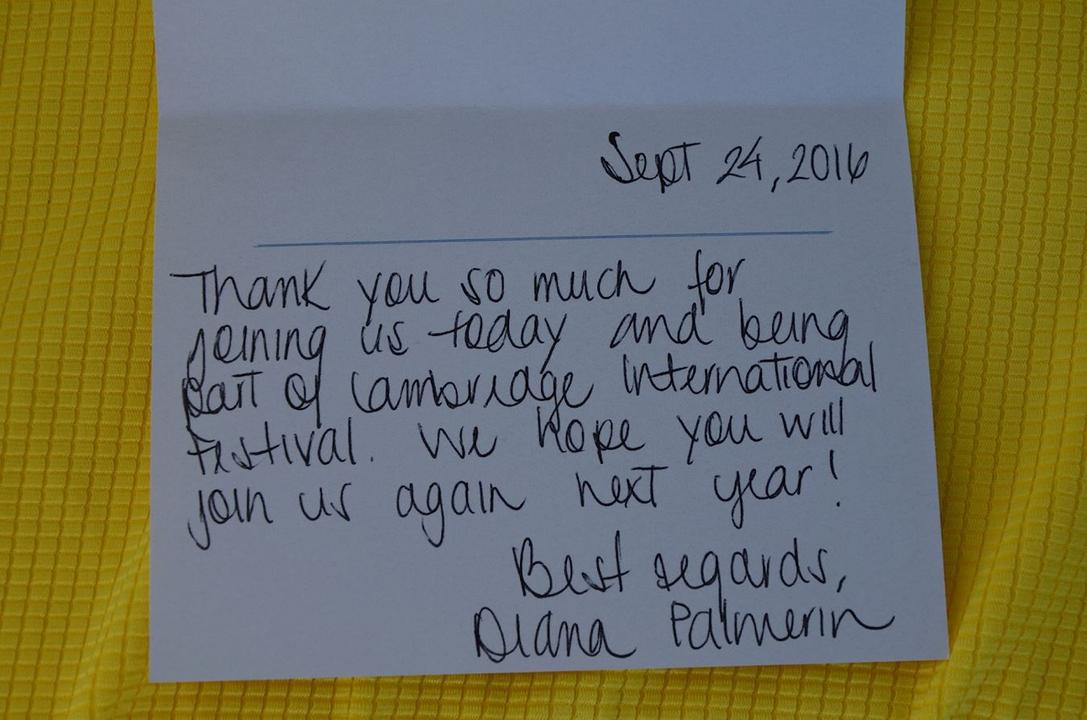 Sept 24, 2016
Thank you so much for
joining us today and being
part of Cambridge International
Festival. We hope you will
join us again next year!
Best regards,
Diana Palmerin